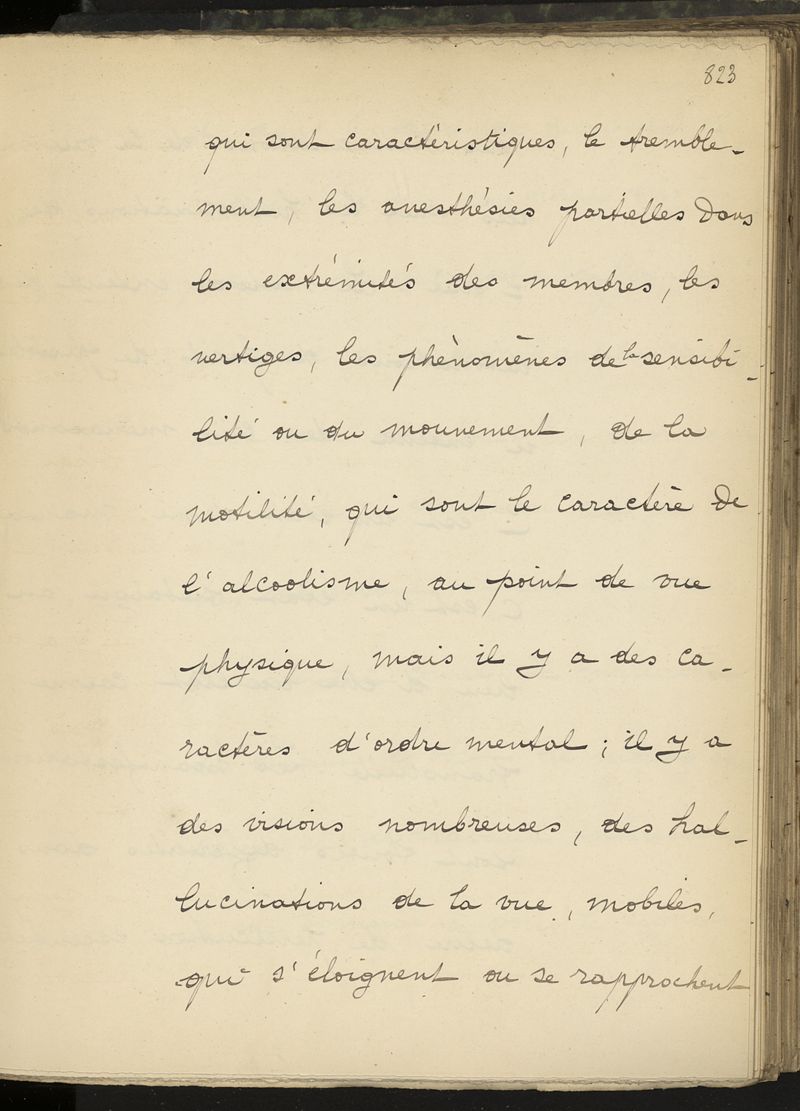 823
qui sont caractéristiques, le tremble-
ment, les anesthésies partielles dans
les extrémités des membres, les
vertiges, les phènomènes de la sensibi-
lité ou du mouvement, de la
motilité, qui sont le caractère de
l'alcoolisme, au point de vue
physique, mais il y a des ca-
ractères d'ordre mental; il y a
des visions nombreuses, des hal-
lucinations de la vue, mobiles,
qui s'éloignent ou se rapprochent